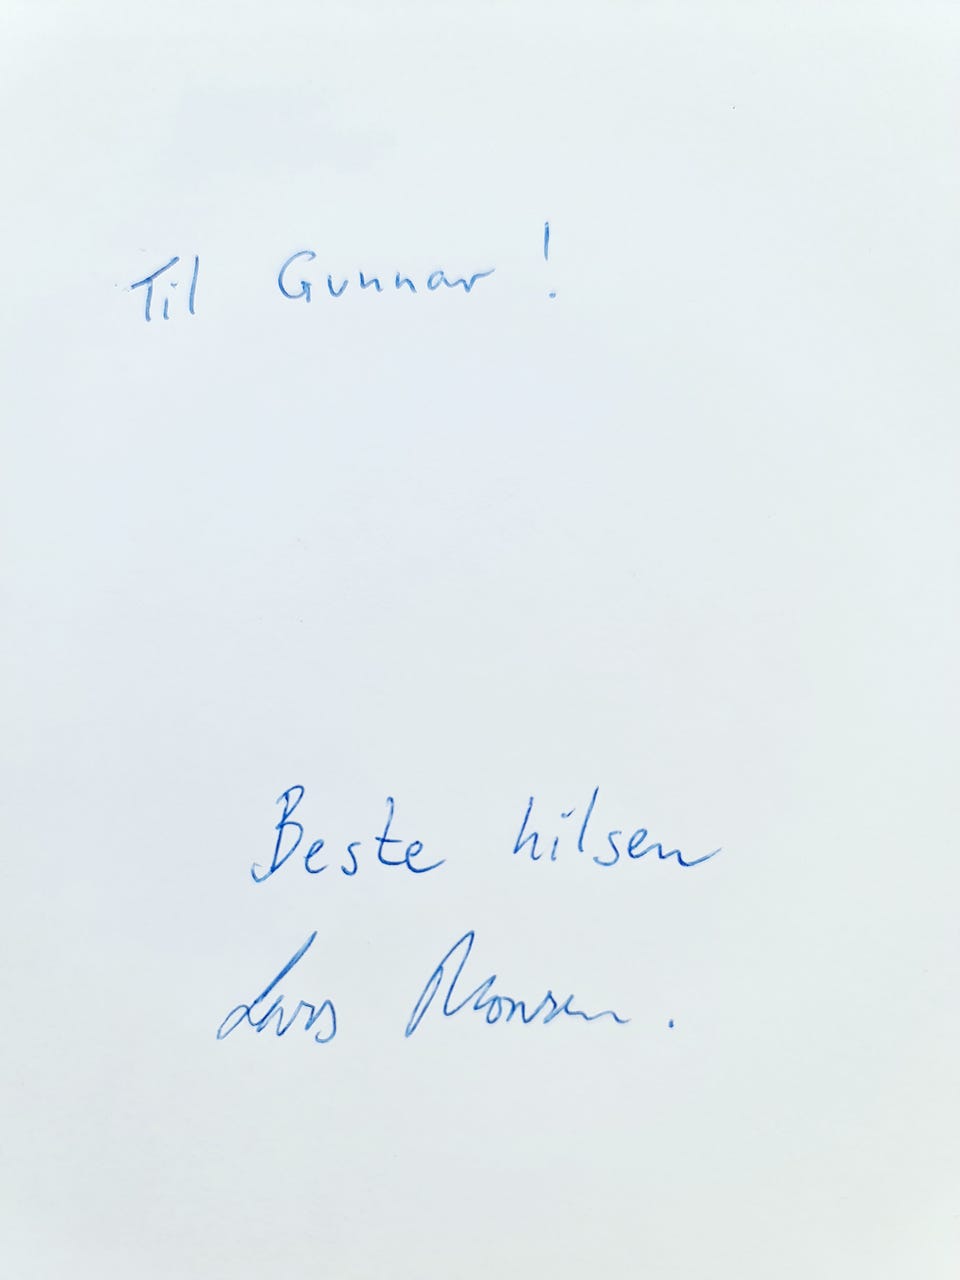 Til Gunnar!
Beste hilsen
Lars Monsen.